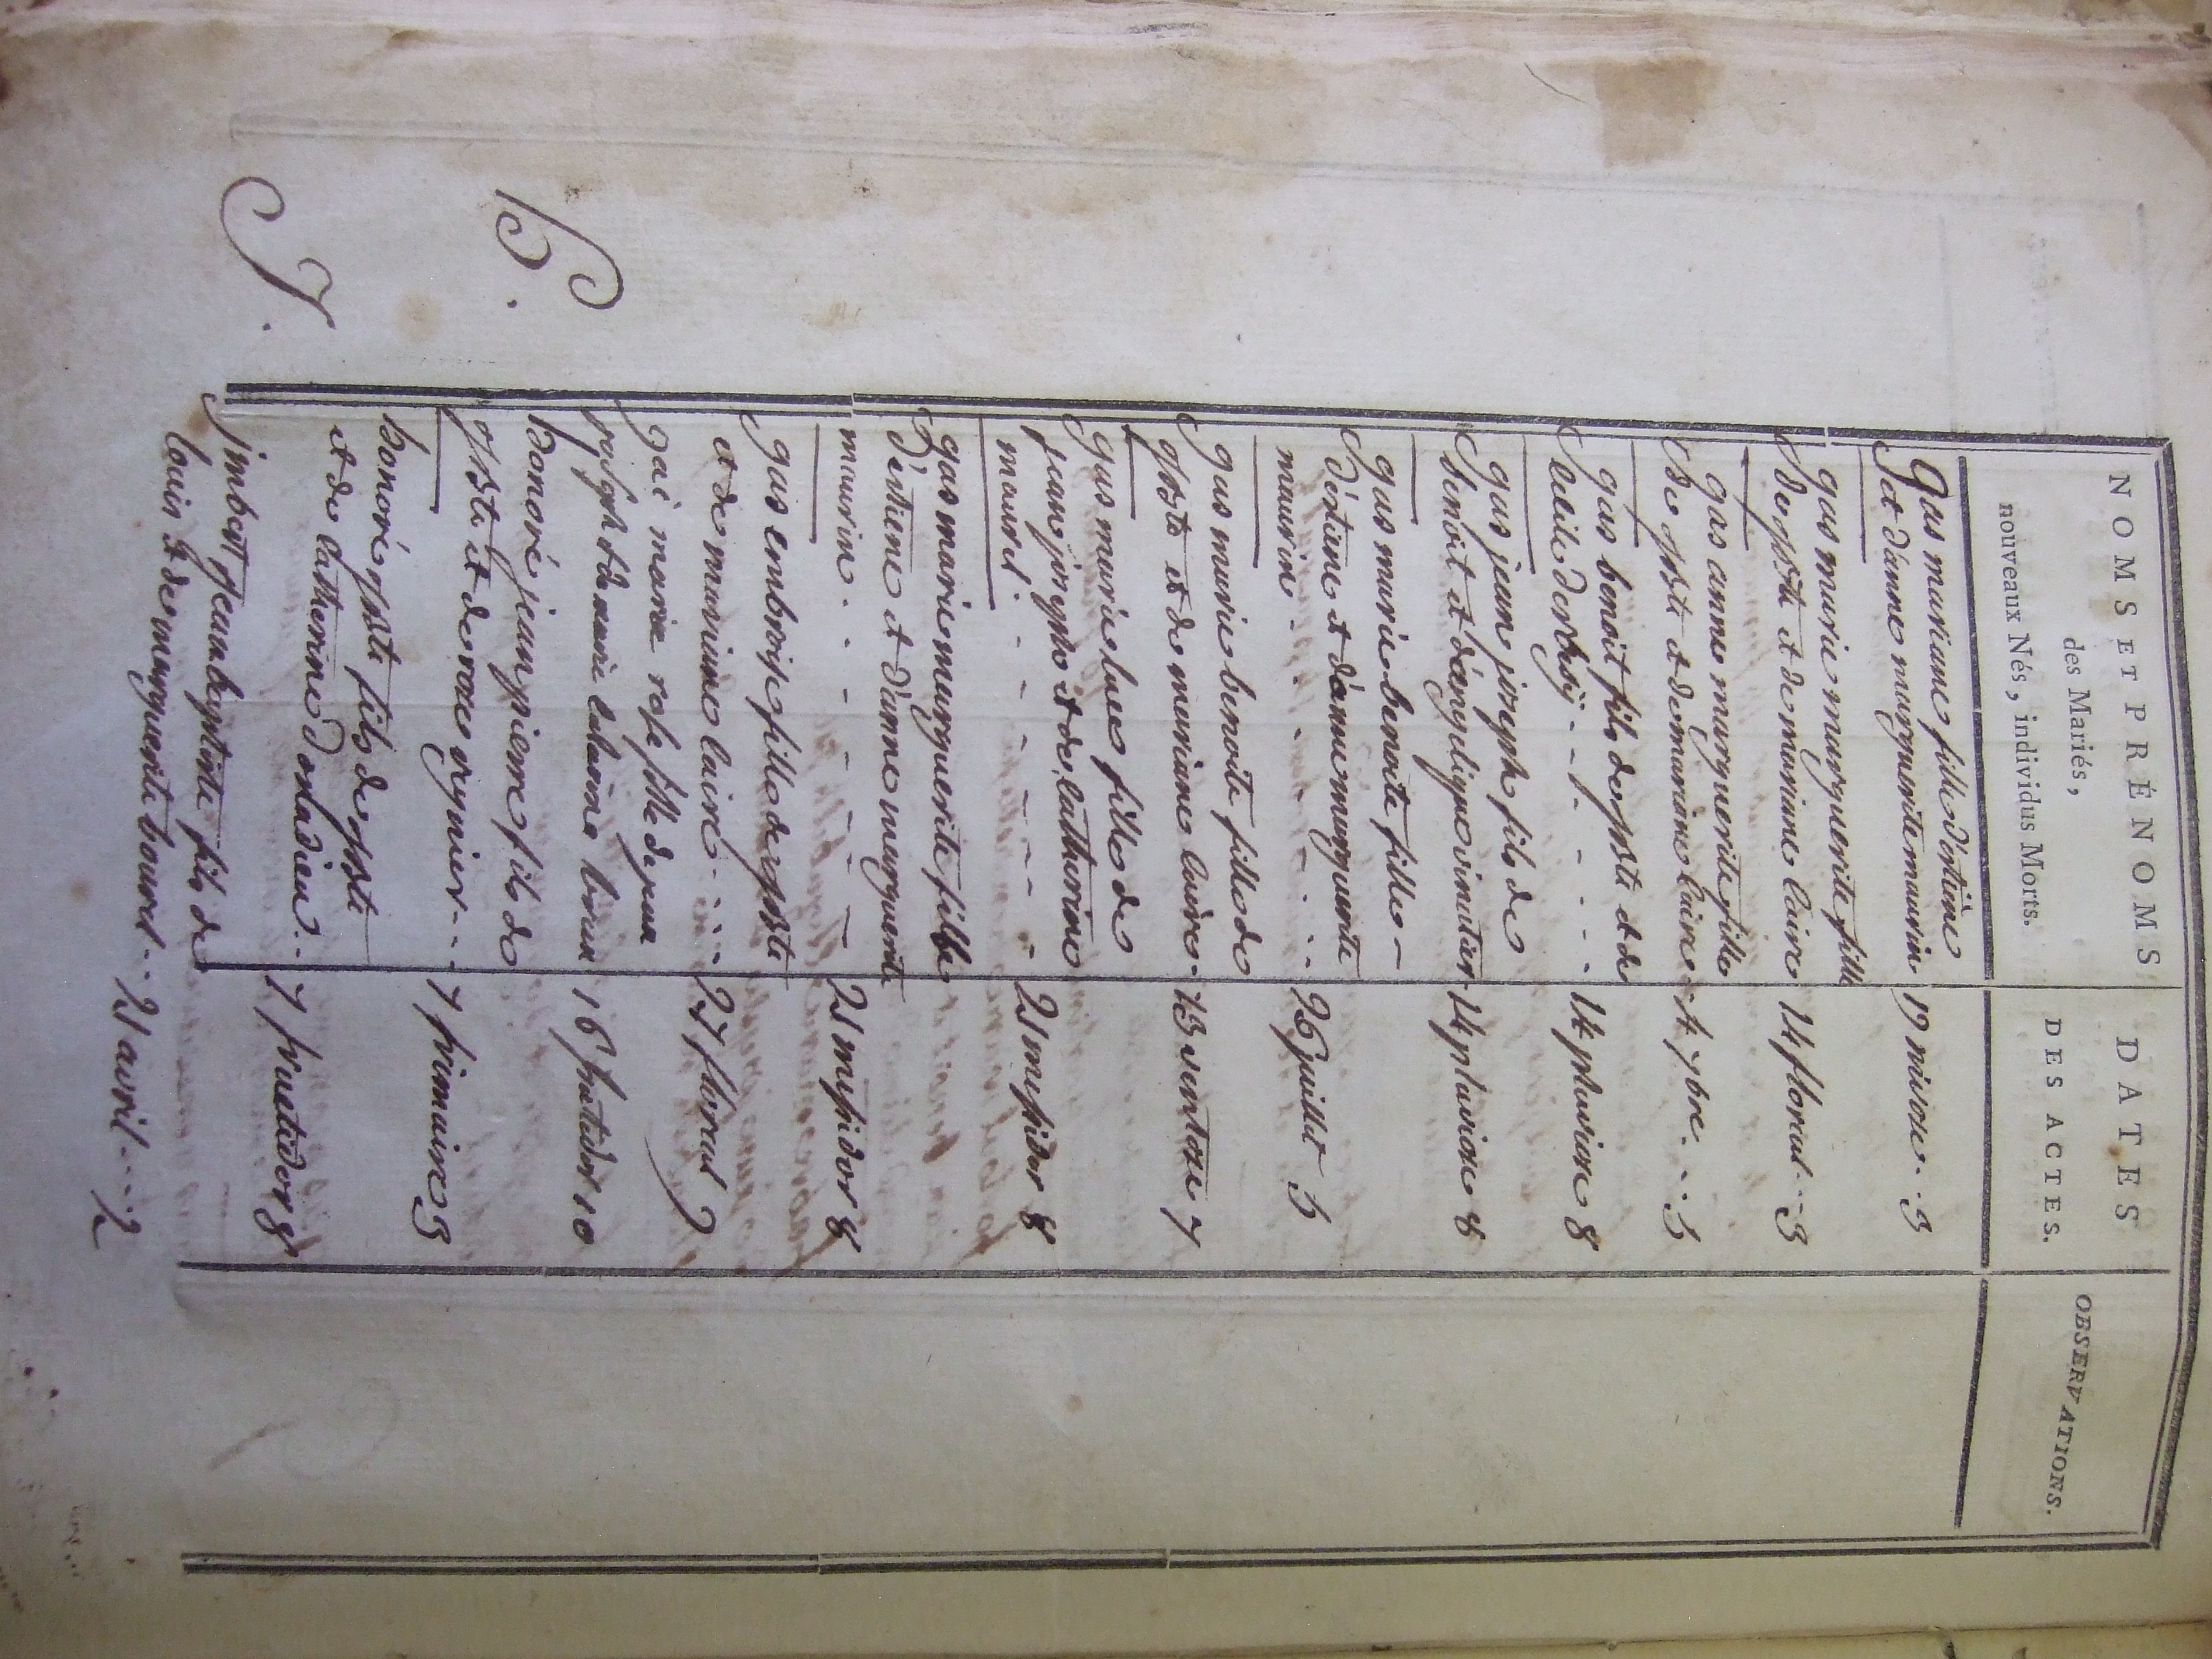 NOMS ET PRÉNOMS
des Mariés,
nouveaux Nés, individus Morts.
DATES
DES ACTES.
OBSERVATIONS.
Gas mariane fille d'estiene
et d'anne marguerite maurin 19 nivose .. 3
gas marie marguerite fille
de jbste et de mariane laire 14 floreal .. 3
gas anne marguerite fille
de jbste et de mariane laire .. 7bre .. 5
gas benoit fils de jbste et de
14 pluviose 8
gas jean joseph fils de
benoit et d'angelique 14 pluviose 8
gas marie benoite fille
d'estiene et d'anne marguerite
maurin 26 juillet 5
gas marie benoite fille de
jbste et de mariane laire 13 ventose 7
gas marie luce fille de
jean joseph et de catherine
maurel 21 messidor 8
gas marie marguerite fille
d'estiene et d'anne marguerite
maurin 21 messidor 8
gas embroise fille de jbste
et de mariane laire 27 floreal 9
gai marie rose fille de jean
joseph et de marie 16 frutidor 10
H.
honoré jean pierre fils de
jbste et de rose 7 frimaire 3
honoré jbste fils de jbste
et de catherine 7 fructidor 8
J.
jmbert jean baptiste fils de
louis et de marguerite bourel .. 21 avril .. 2